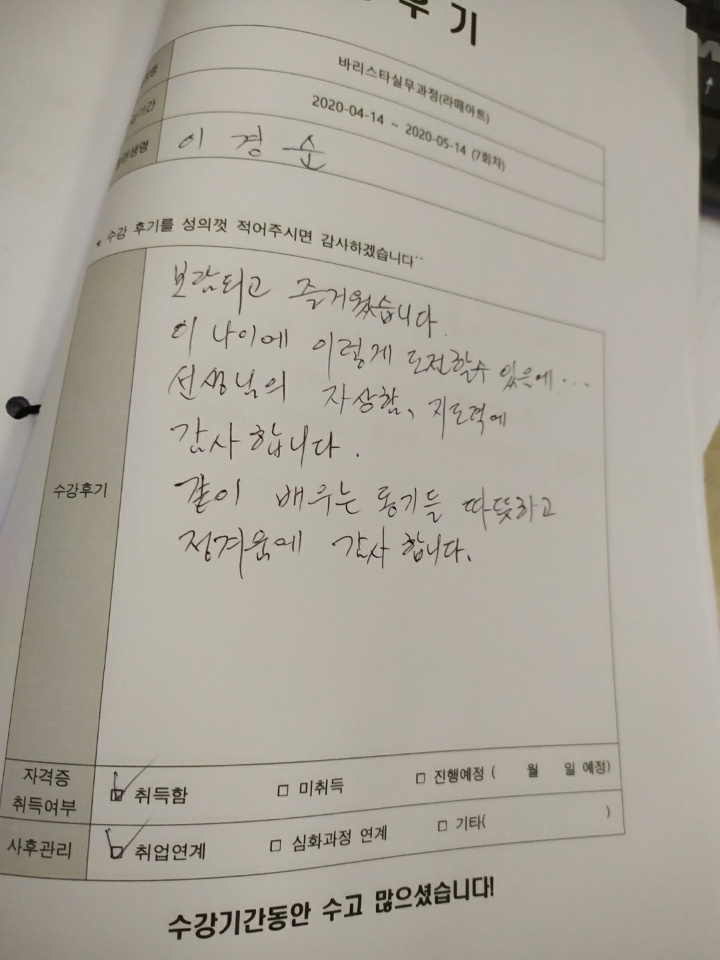 후기
바리스타실무과정(라떼아트)
기간
2020-04-14 ~ 2020-05-14 (7회차)
이경순
* 수강 후기를 성의껏 적어주시면 감사하겠습니다~~
수강후기
보람되고 즐거웠습니다.
이 나이에 이렇게 도전할수 있음에...
선생님의 자상함, 지도력에
감사합니다.
같이 배우는 동기들 따뜻하고
정겨움에 감사합니다.
자격증
취득여부
취득함
□ 미취득
□ 진행예정 ( 월 일 예정)
사후관리
취업연계
□ 심화과정 연계
□ 기타( )
수강기간동안 수고 많으셨습니다!